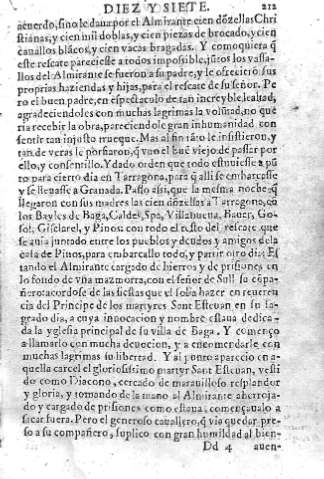 DIEZ Y SIETE. 212
acuerdo, sino le daua por el Almirante cien dõzellas Chri
stianas, y cien mil doblas, y cien pieças de brocado, y cien
cauallos blãcos, y cien vacas bragadas. Y como quiera q̃
este rescate pareciesse a todos impossible, jũtos los vassa-
llos del Almirante se fueron a su padre, y le ofrecierõ sus
proprias haziendas y hijas, para el rescate de su señor. Pe
ro el buen padre, en espectaculo de tan increyble lealtad,
agradeciendoles con muchas lagrimas la volũtad, no que
ria recebir la obra, pareciendole gran inhumanidad, con
sentir tan injusto trueque. Mas al fin tãto le insistieron, y
tan de veras le porfiaron, q̃ vuo el buẽ viejo de passar por
ello, y consentillo. Y dado orden que todo estuuiesse a pũ
to para cierto dia en Tarragona, para q̃ alli se embarcasse
y se lleuasse a Granada. Passo assi, que la mesma noche, q̃
llegaron con sus madres las cien dõzellas a Tarragona, cõ
los Bayles de Baga, Caldes, Spa, Villanueua, Bauer, Go-
sol, Gisclarel, y Pinos: con todo el resto del rescate, que
se auia juntado entre los pueblos y deudos y amigos de la
casa de Pinos, para embarcallo todo, y partir otro dia: Es
tando el Almirante cargado de hierros y de prisiones en
lo fondo de vna mazmorra, con el señer de Sull su cõpa-
ñero: acordose de las fiestas que el solia hazer en reueren
cia del Principe de los martyres Sant Esteuan en su sa-
grado dia, a cuya inuocacion y nombre estaua dedica-
da la yglesia principal de su villa de Baga. Y començo
a llamarlo con mucha deuocion, y a encomendarle con
muchas lagrimas su libertad. Y al punto aparecio en a-
quella carcel el gloriosissimo martyr Sant Esteuan, vesti
do como Diacono, cercado de marauilloso resplandor
y gloria, y tomando de la mano al Almirante aherroja-
do y cargado de prisiones como estaua, començaualo a
sicar fuera. Pero el generoso cauallero, q̃ via quedar pre-
so a su compañero, suplico con gran humildad al bien-
Dd 4 auen-